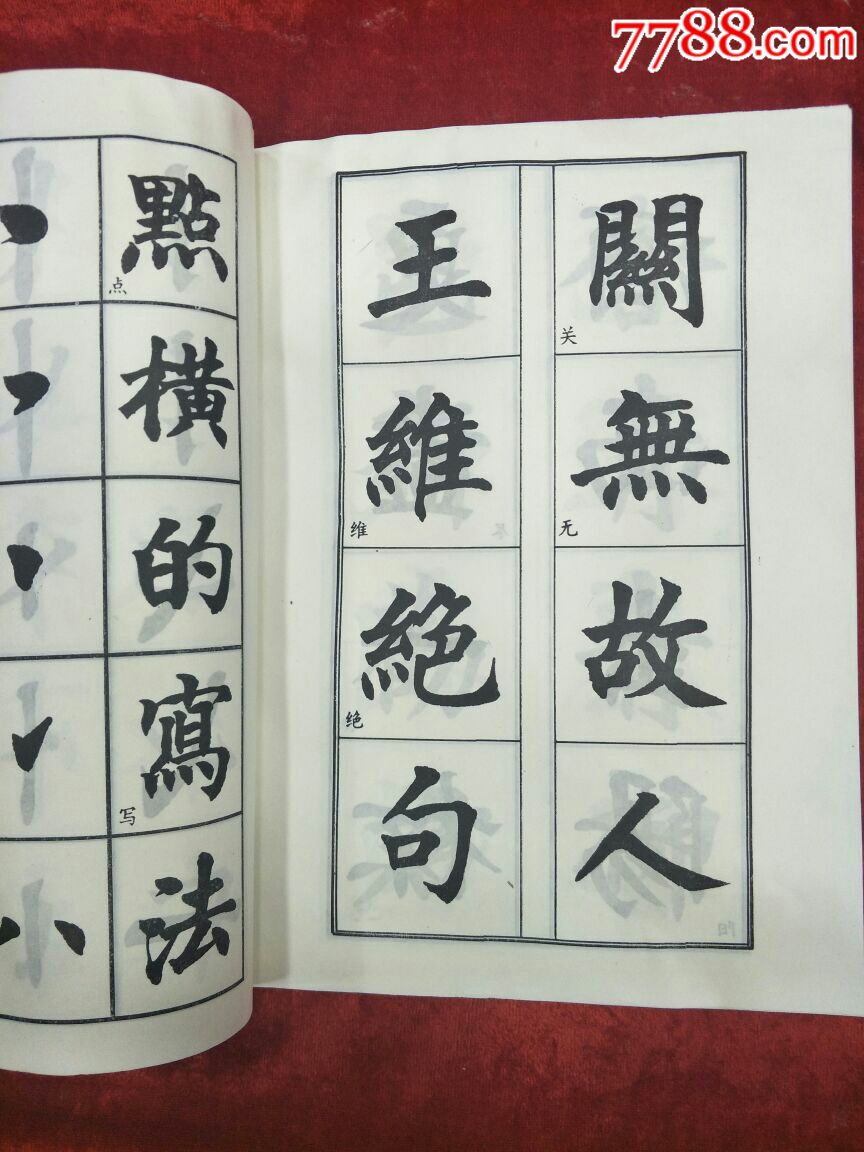 7788.com
點橫的寫法
点
写
關無故人
关
无
王維絕句
维
绝